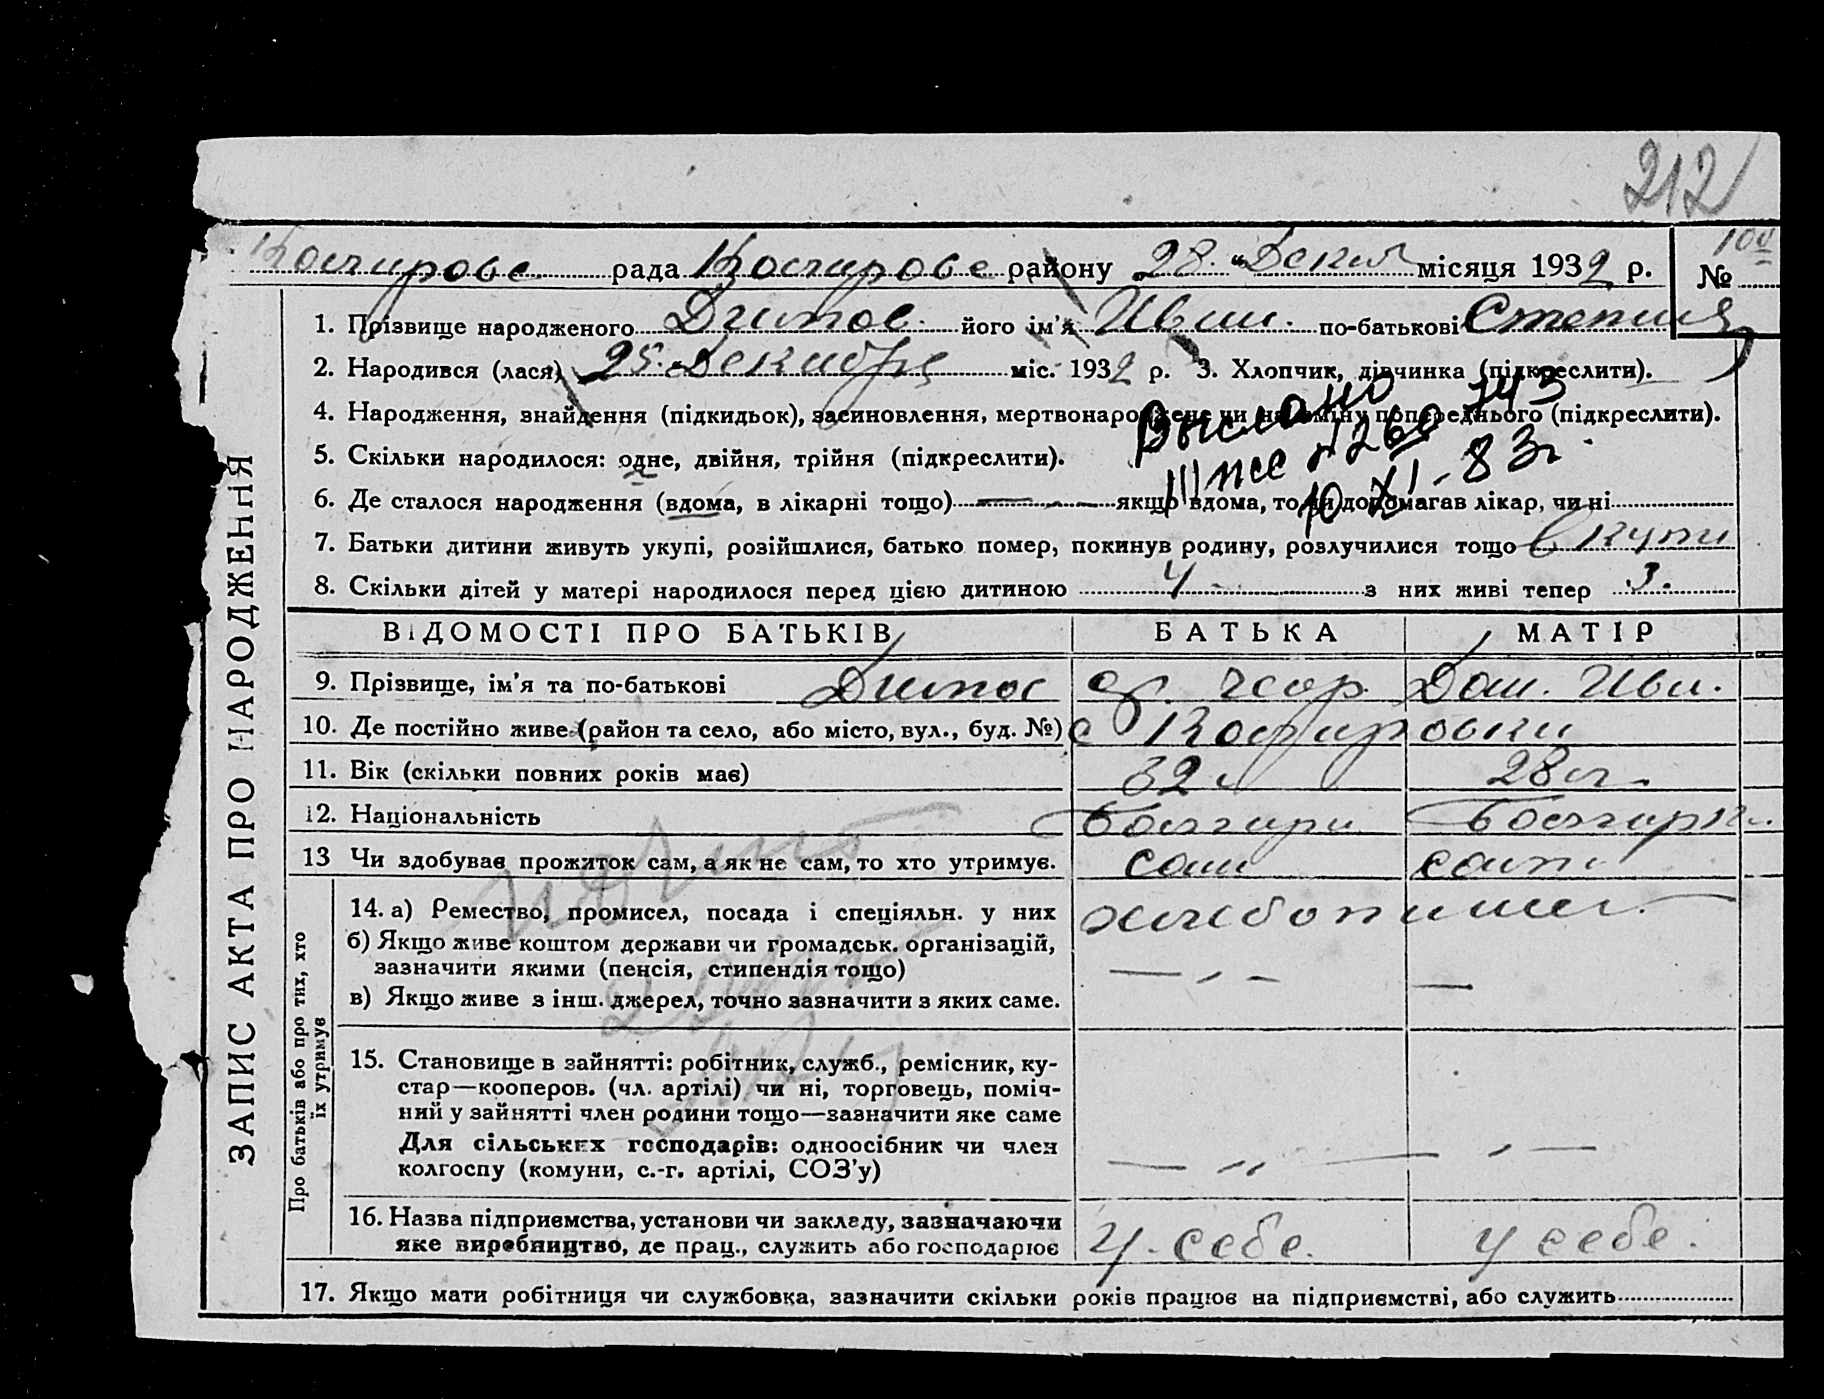 212
рада району 28 " місяця 1932 р. №
1. Прізвище народженого його ім'я Иван. по-батькові
2. Народився (лася) 25. Декабря міс. 1932 р. 3. Хлопчик, дівчинка (підкреслити).
4. Народження, знайдення (підкидьок), засиновлення, мертвонароджене чи на зміну попереднього (підкреслити).
Выслано
III ПСС №260743
10 XI-83г.
5. Скільки народилося: одне, двійня, трійня (підкреслити).
6. Де сталося народження (вдома, в лікарні тощо) якщо вдома, то чи допомагав лікар, чи ні
7. Батьки дитини живуть укупі, розійшлися, батько помер, покинув родину, розлучилися тощо вкупи
8. Скільки дітей у матері народилося перед цією дитиною 4 з них живі тепер 3.
ЗАПИС АКТА ПРО НАРОДЖЕННЯ
ВІДОМОСТІ ПРО БАТЬКІВ БАТЬКА МАТІР
9. Прізвище, ім'я та по-батькові
10. Де постійно живе (район та село, або місто, вул., буд. №) с
11. Вік (скільки повних років має) 32 28
12. Національність
13 Чи здобував прожиток сам, а як не сам, то хто утримує. сам сама
Про батьків або про тих, хто їх утримує
14. а) Ремество, промисел, посада і спеціяльн. у них
б) Якщо живе коштом держави чи громадськ. організацій,
зазначити якими (пенсія, стипендія тощо)
в) Якщо живе з інш. джерел, точно зазначити з яких саме.
15. Становище в зайнятті: робітник, служб., ремісник, ку-
стар—кооперов. (чл. артілі) чи ні, торговець, поміч-
ний у зайнятті член родини тощо—зазначити яке саме
Для сільських господарів: одноосібник чи член
колгоспу (комуни, с.-г. артілі, СОЗ'у)
16. Назва підприємства, установи чи закладу, зазначаючи
яке виробництво, де прац., служить або господарює у себе. у себе.
17. Якщо мати робітниця чи службовка, зазначити скільки років працює на підприємстві, або служить